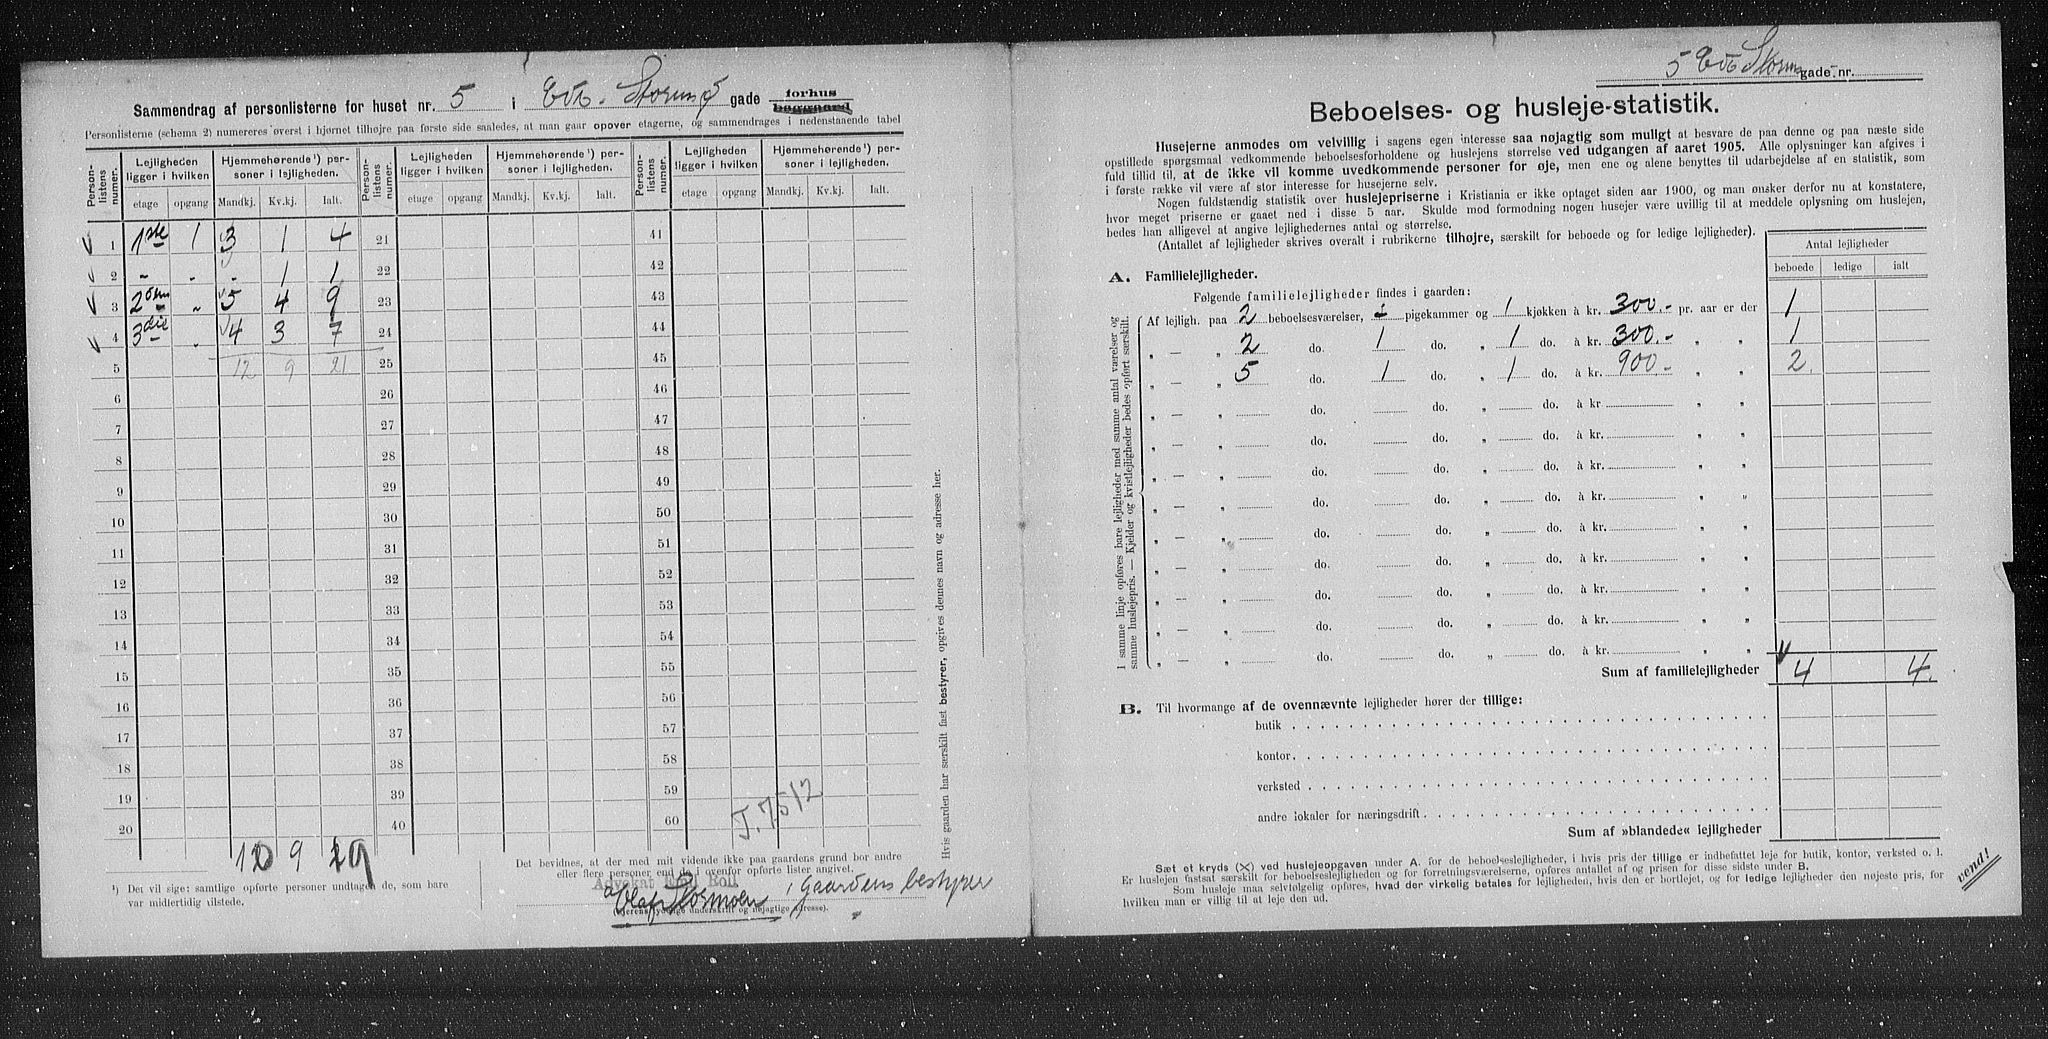 Sammendrag af personlisterne for huset nr. 5 i gade forhus
baggaard
Personlisterne (schema 2) numereres øverst i hjørnet tilhøjre paa første side saaledes, at man gaar opover etagerne, og sammendrages i nedenstaaende tabel
Person-listens nummer. Lejligheden ligger i hvilken Hjemmehørende ¹) personer i lejligheden. Person-listens nummer. Lejligheden ligger i hvilken Hjemmehørende ¹) personer i lejligheden. Person-listens nummer. Lejligheden ligger i hvilken Hjemmehørende ¹) personer i lejligheden.
etage opgang Mandkj. Kv.kj. Ialt. etage opgang Mandkj. Kv.kj. Ialt. etage opgang Mandkj. Kv.kj. Ialt.
1 1ste 1 3 1 4 21 41
2 - . - 1 1 22 42
3 2den „ 5 4 9 23 43
4 3die . 4 3 7 24 44
5 12 9 21 25 45
6 26 46
7 27 47
8 28 48
9 29 49
10 30 50
11 31 51
12 32 52
13 33 53
14 34 54
15 35 55
16 36 56
17 37 57
18 38 58
19 39 59
20 40 60
J. 7512
9 19
¹) Det vil sige: samtlige opførte personer undtagen de, som bare
var midlertidig tilstede.
Det bevidnes, at der med mit vidende ikke paa gaardens grund bor andre
eller flere personer end de i ovenfor opførte lister angivet.
Advokat Boll
Olaf Stormoen, Gaardens bestyrer
(Ejerens tydelige underskrift og nøjagtige adresse).
Hvis gaarden har særskilt fast bestyrer, opgives dennes navn og adresse her.
5 gade nr.
Beboelses- og husleje-statistik.
Husejerne anmodes om velvillig i sagens egen interesse saa nøjagtig som muligt at besvare de paa denne og paa næste side
opstillede spørgsmaal vedkommende beboelsesforholdene og huslejens størrelse ved udgangen af aaret 1905. Alle oplysninger kan afgives i
fuld tillid til, at de ikke vil komme uvedkommende personer for øje, men ene og alene benyttes til udarbejdelse af en statistik, som
i første række vil være af stor interesse for husejerne selv.
Nogen fuldstændig statistik over huslejepriserne i Kristiania er ikke optaget siden aar 1900, og man ønsker derfor nu at konstatere,
hvor meget priserne er gaaet ned i disse 5 aar. Skulde mod formodning nogen husejer være uvillig til at meddele oplysning om huslejen,
bedes han alligevel at angive lejlighedernes antal og størrelse.
(Antallet af lejligheder skrives overalt i rubrikerne tilhøjre, særskilt for beboede og for ledige lejligheder).
Antal lejligheder
beboede ledige ialt
A. Familielejligheder.
Følgende familielejligheder findes i gaarden:
Af lejligh. paa 2 beboelsesværelser, - pigekammer og 1 kjøkken à kr. 300.- pr. aar er der 1
„ — „ 2 do. 1 do. „ 1 do. à kr. 300.- „ „ 1
„ — „ 5 do. 1 do. „ 1 do. à kr. 900.- „ „ 2.
„ — „ do. do. „ do. à kr. „ „
„ — „ do. do. „ do. à kr. „ „
„ — „ do. do. „ do. à kr. „ „
„ — „ do. do. „ do. à kr. „ „
„ — „ do. do. „ do. à kr. „ „
„ — „ do. do. „ do. à kr. „ „
„ — „ do. do. „ do. à kr. „ „
„ — „ do. do. „ do. à kr. „ „
„ — „ do. do. „ do. à kr. „ „
I samme linje opføres bare lejligheder med samme antal værelser og
samme huslejepris. — Kjelder og kvistlejligheder bedes opført særskilt.
Sum af familielejligheder 4 4.
B. Til hvormange af de ovennævnte lejligheder hører der tillige:
butik
kontor
verksted
andre lokaler for næringsdrift
Sum af »blandede« lejligheder
Sæt et kryds (X) ved huslejeopgaven under A. for de beboelseslejligheder, i hvis pris der tillige er indbefattet leje for butik, kontor, verksted o. l.
Er huslejen fastsat særskilt for beboelseslejligheden og for forretningsværelserne, opføres antallet af og prisen for disse sidste under B.
Som husleje maa selvfølgelig opføres, hvad der virkelig betales for lejligheden, hvis den er bortlejet, og for ledige lejligheder den nøjeste pris, for
hvilken man er villig til at leje den ud.
vend!